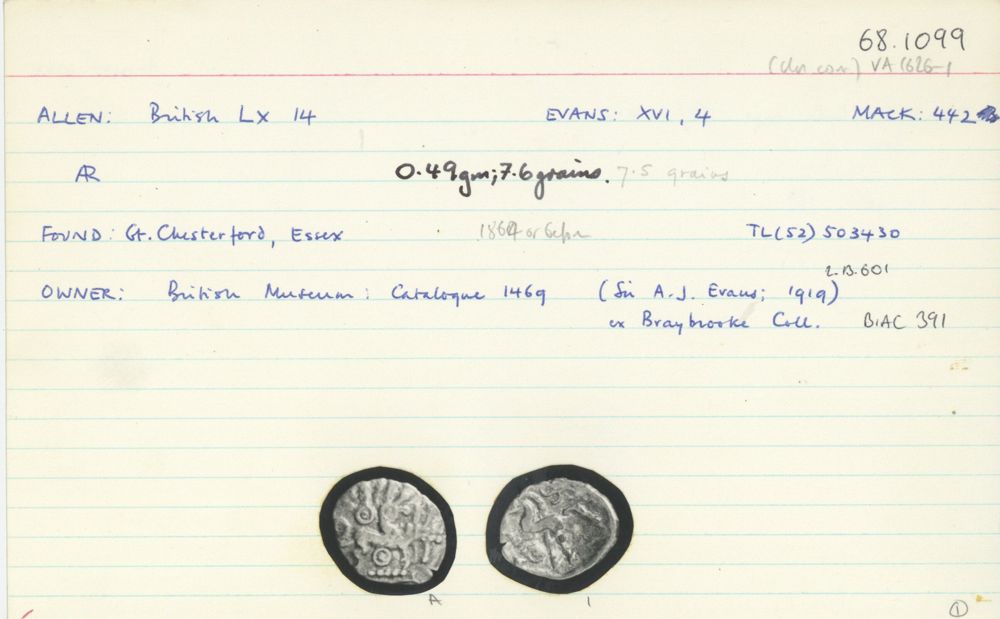 68.1099
VA 1626-1
ALLEN: British LX 14 EVANS: XVI, 4 MACK: 442
AR 0.49gm; 7.6 grains. 7.5 grains
FOUND: Gt. Chesterford, Essex or before TL(52) 503430
2.13.601
OWNER: British Museum: Catalogue 1469 (Sir A.J. Evans; 1919)
ex Braybrooke Coll. BIAC 391
A 1
1